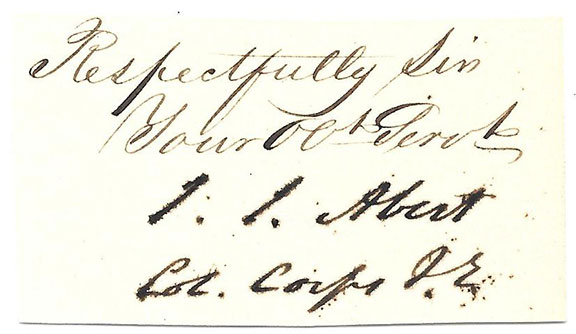 Respectfully Sir
Your Obt Servt
J. J. Abert
Col. Corps T. E.